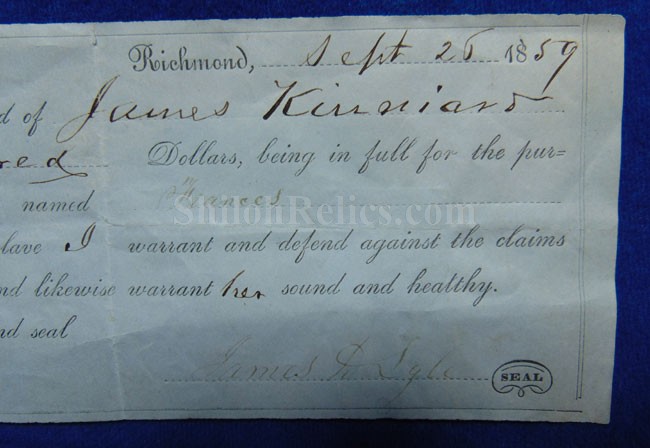 Richmond, Sept 26 1859
d of James Kinniard
red Dollars, being in full for the pur=
named Frances
SheltonRelics.com
lave I warrant and defend against the claims
nd likewise warrant her sound and healthy.
nd seal
James D
SEAL